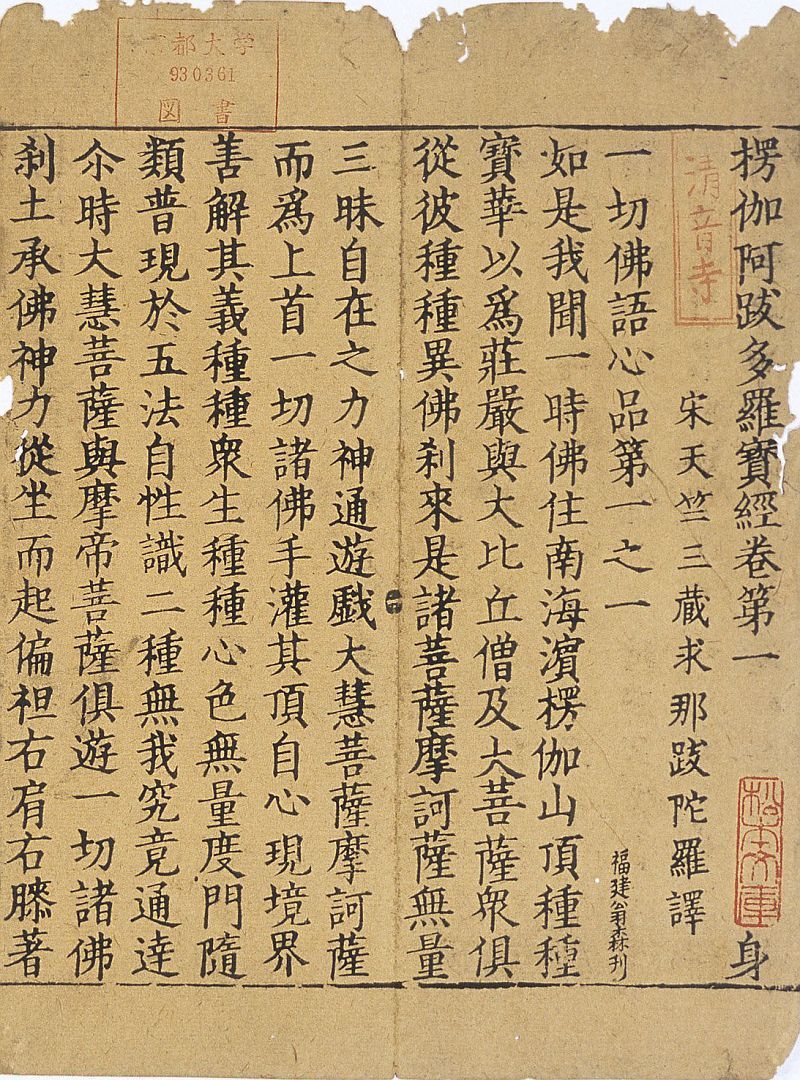 楞伽阿跋多羅寶經卷第一
身
宋天竺三藏求那跋陀羅譯
一切佛語心品第一之一
福建翁森刊
如是我聞一時佛住南海濵楞伽山頂種種
寶華以爲莊嚴與大比丘僧及大菩薩衆俱
從彼種種異佛刹來是諸菩薩摩訶薩無量
三昧自在之力神通遊戱大慧菩薩摩訶薩
而爲上首一切諸佛手灌其頂自心現境界
善解其義種種衆生種種心色無量度門隨
類普現於五法自性識二種無我究竟通達
尒時大慧菩薩與摩帝菩薩俱遊一切諸佛
刹土承佛神力從坐而起偏袒右肩右膝著
都大学
930361
図書
清音寺